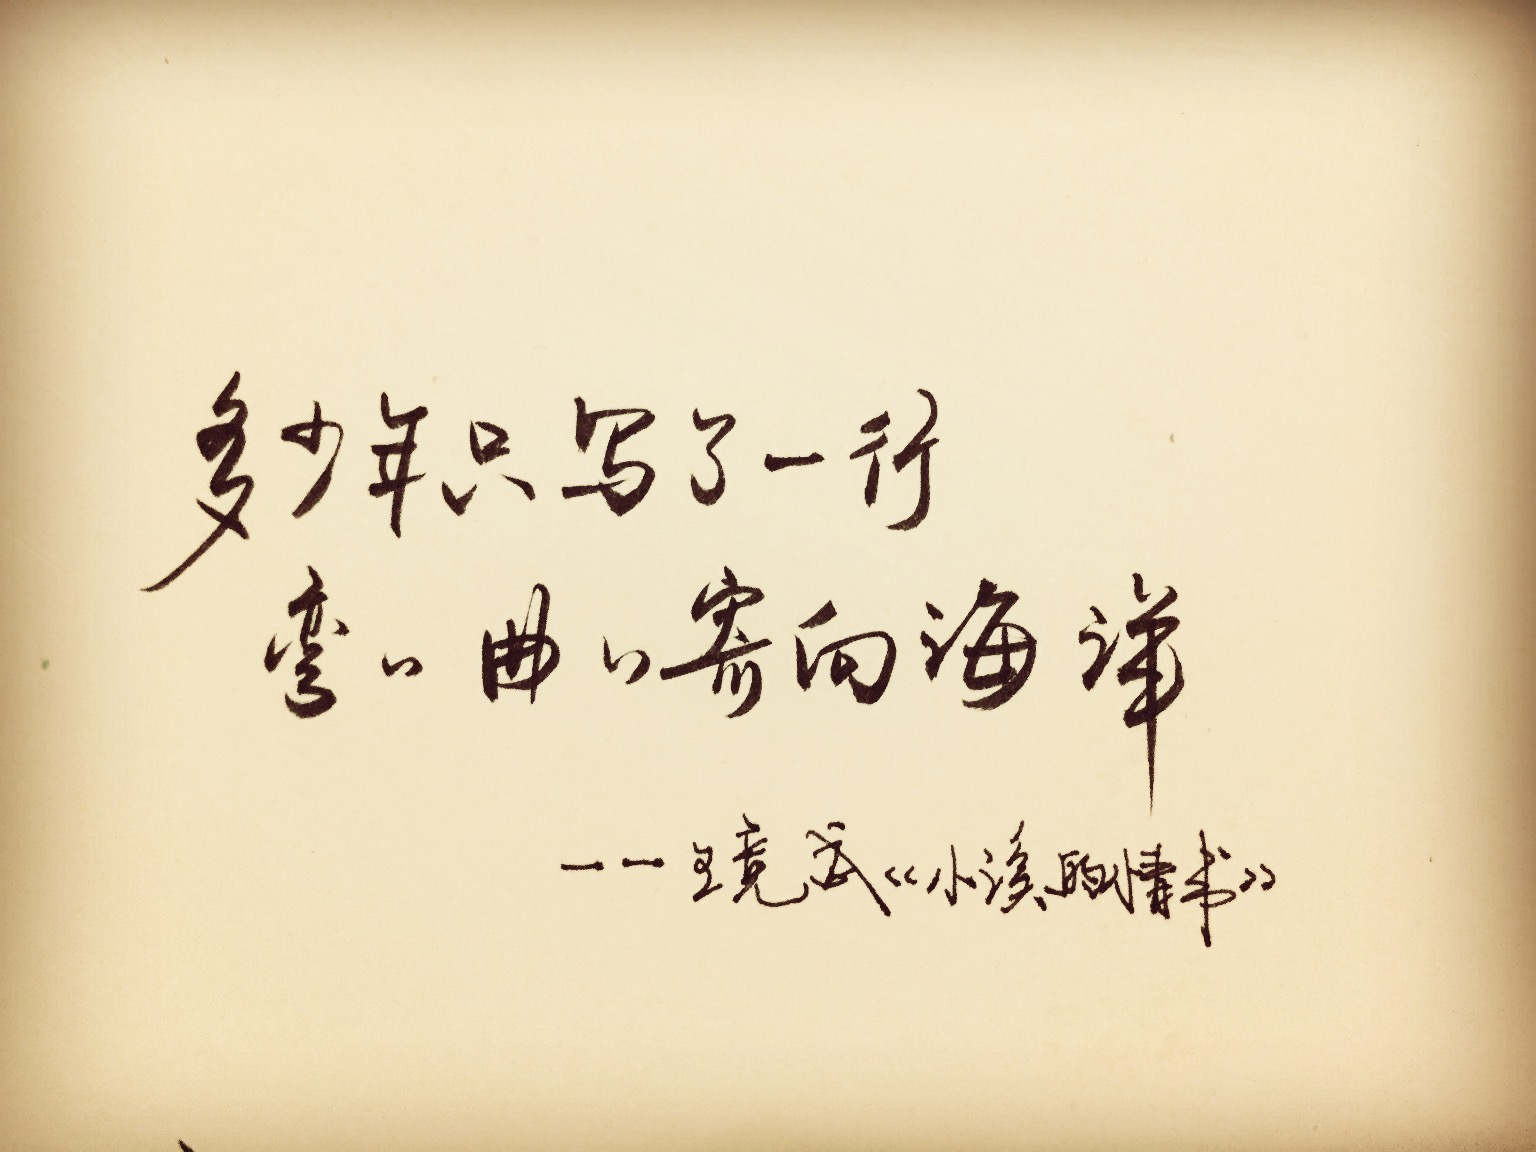 多少年只写了一行
弯弯曲曲寄向海洋
——王竞成《小溪的情书》